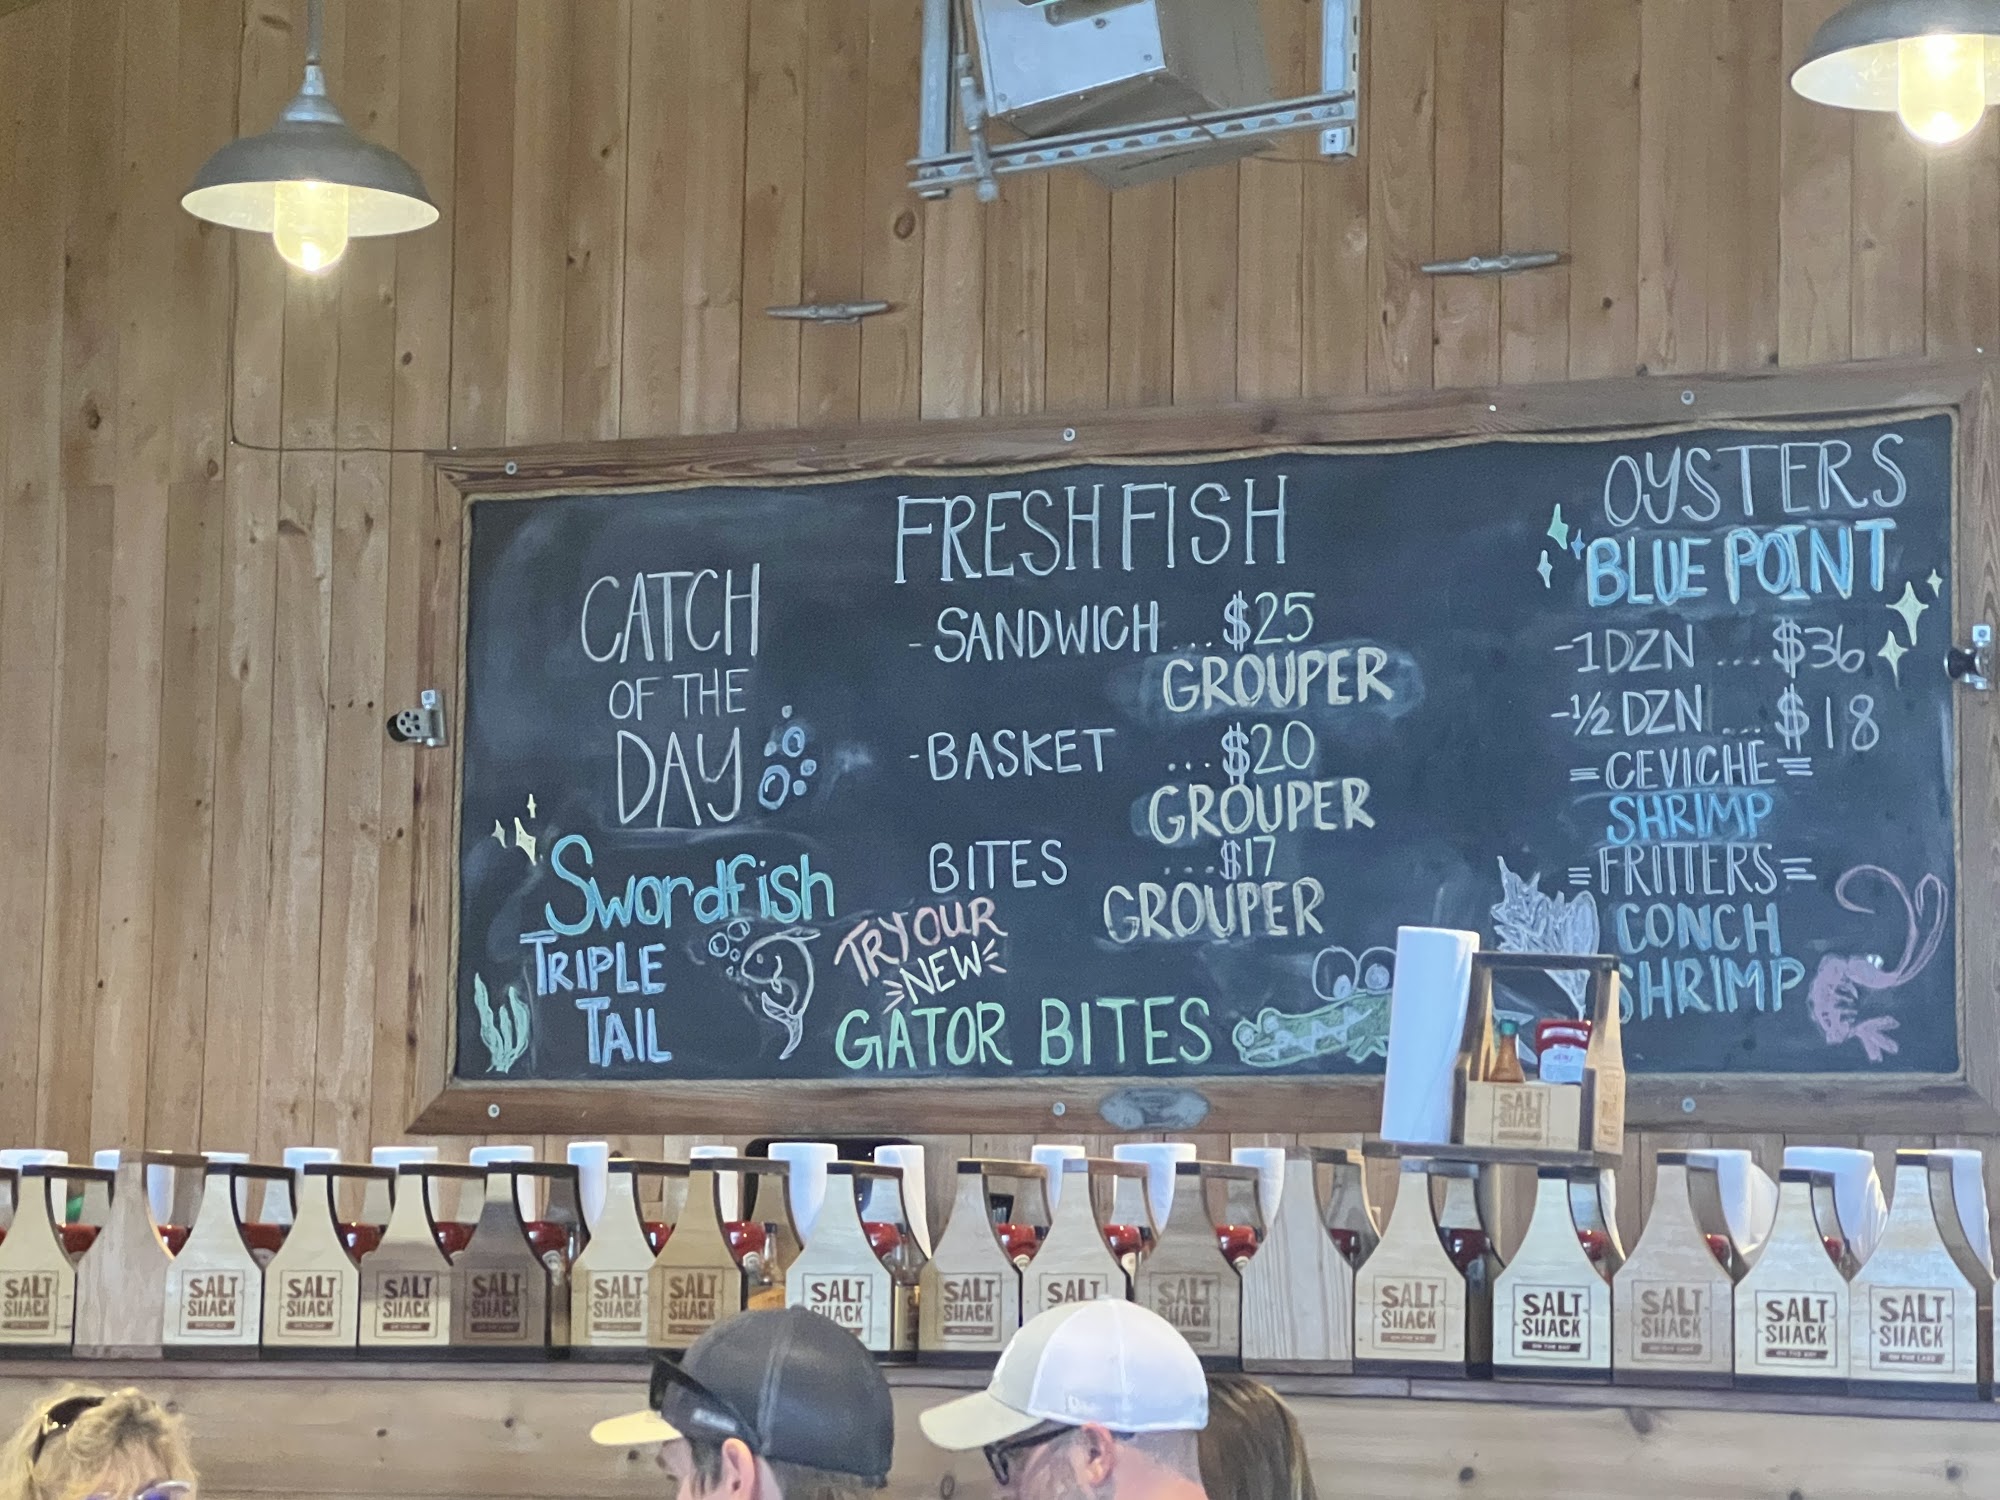 CATCH
OF THE
DAY
Swordfish
TRIPLE
TAIL
FRESH FISH
-SANDWICH ... $25
GROUPER
-BASKET ... $20
GROUPER
BITES ... $17
GROUPER
TRY OUR
NEW
GATOR BITES
OYSTERS
BLUE POINT
-1 DZN ... $36
-1/2 DZN ... $18
=CEVICHE=
SHRIMP
=FRITTERS=
CONCH
SHRIMP
SALT
SHACK
SALT
SHACK
SALT
SHACK
SALT
SHACK
SALT
SHACK
SALT
SHACK
SALT
SHACK
SALT
SHACK
SALT
SHACK
SALT
SHACK
SALT
SALT
SHACK
SALT
SHACK
SALT
SHACK
ON THE BAY
SALT
SHACK
SALT
SHACK
ON THE BAY
SALT
SHACK
ON THE LAKE